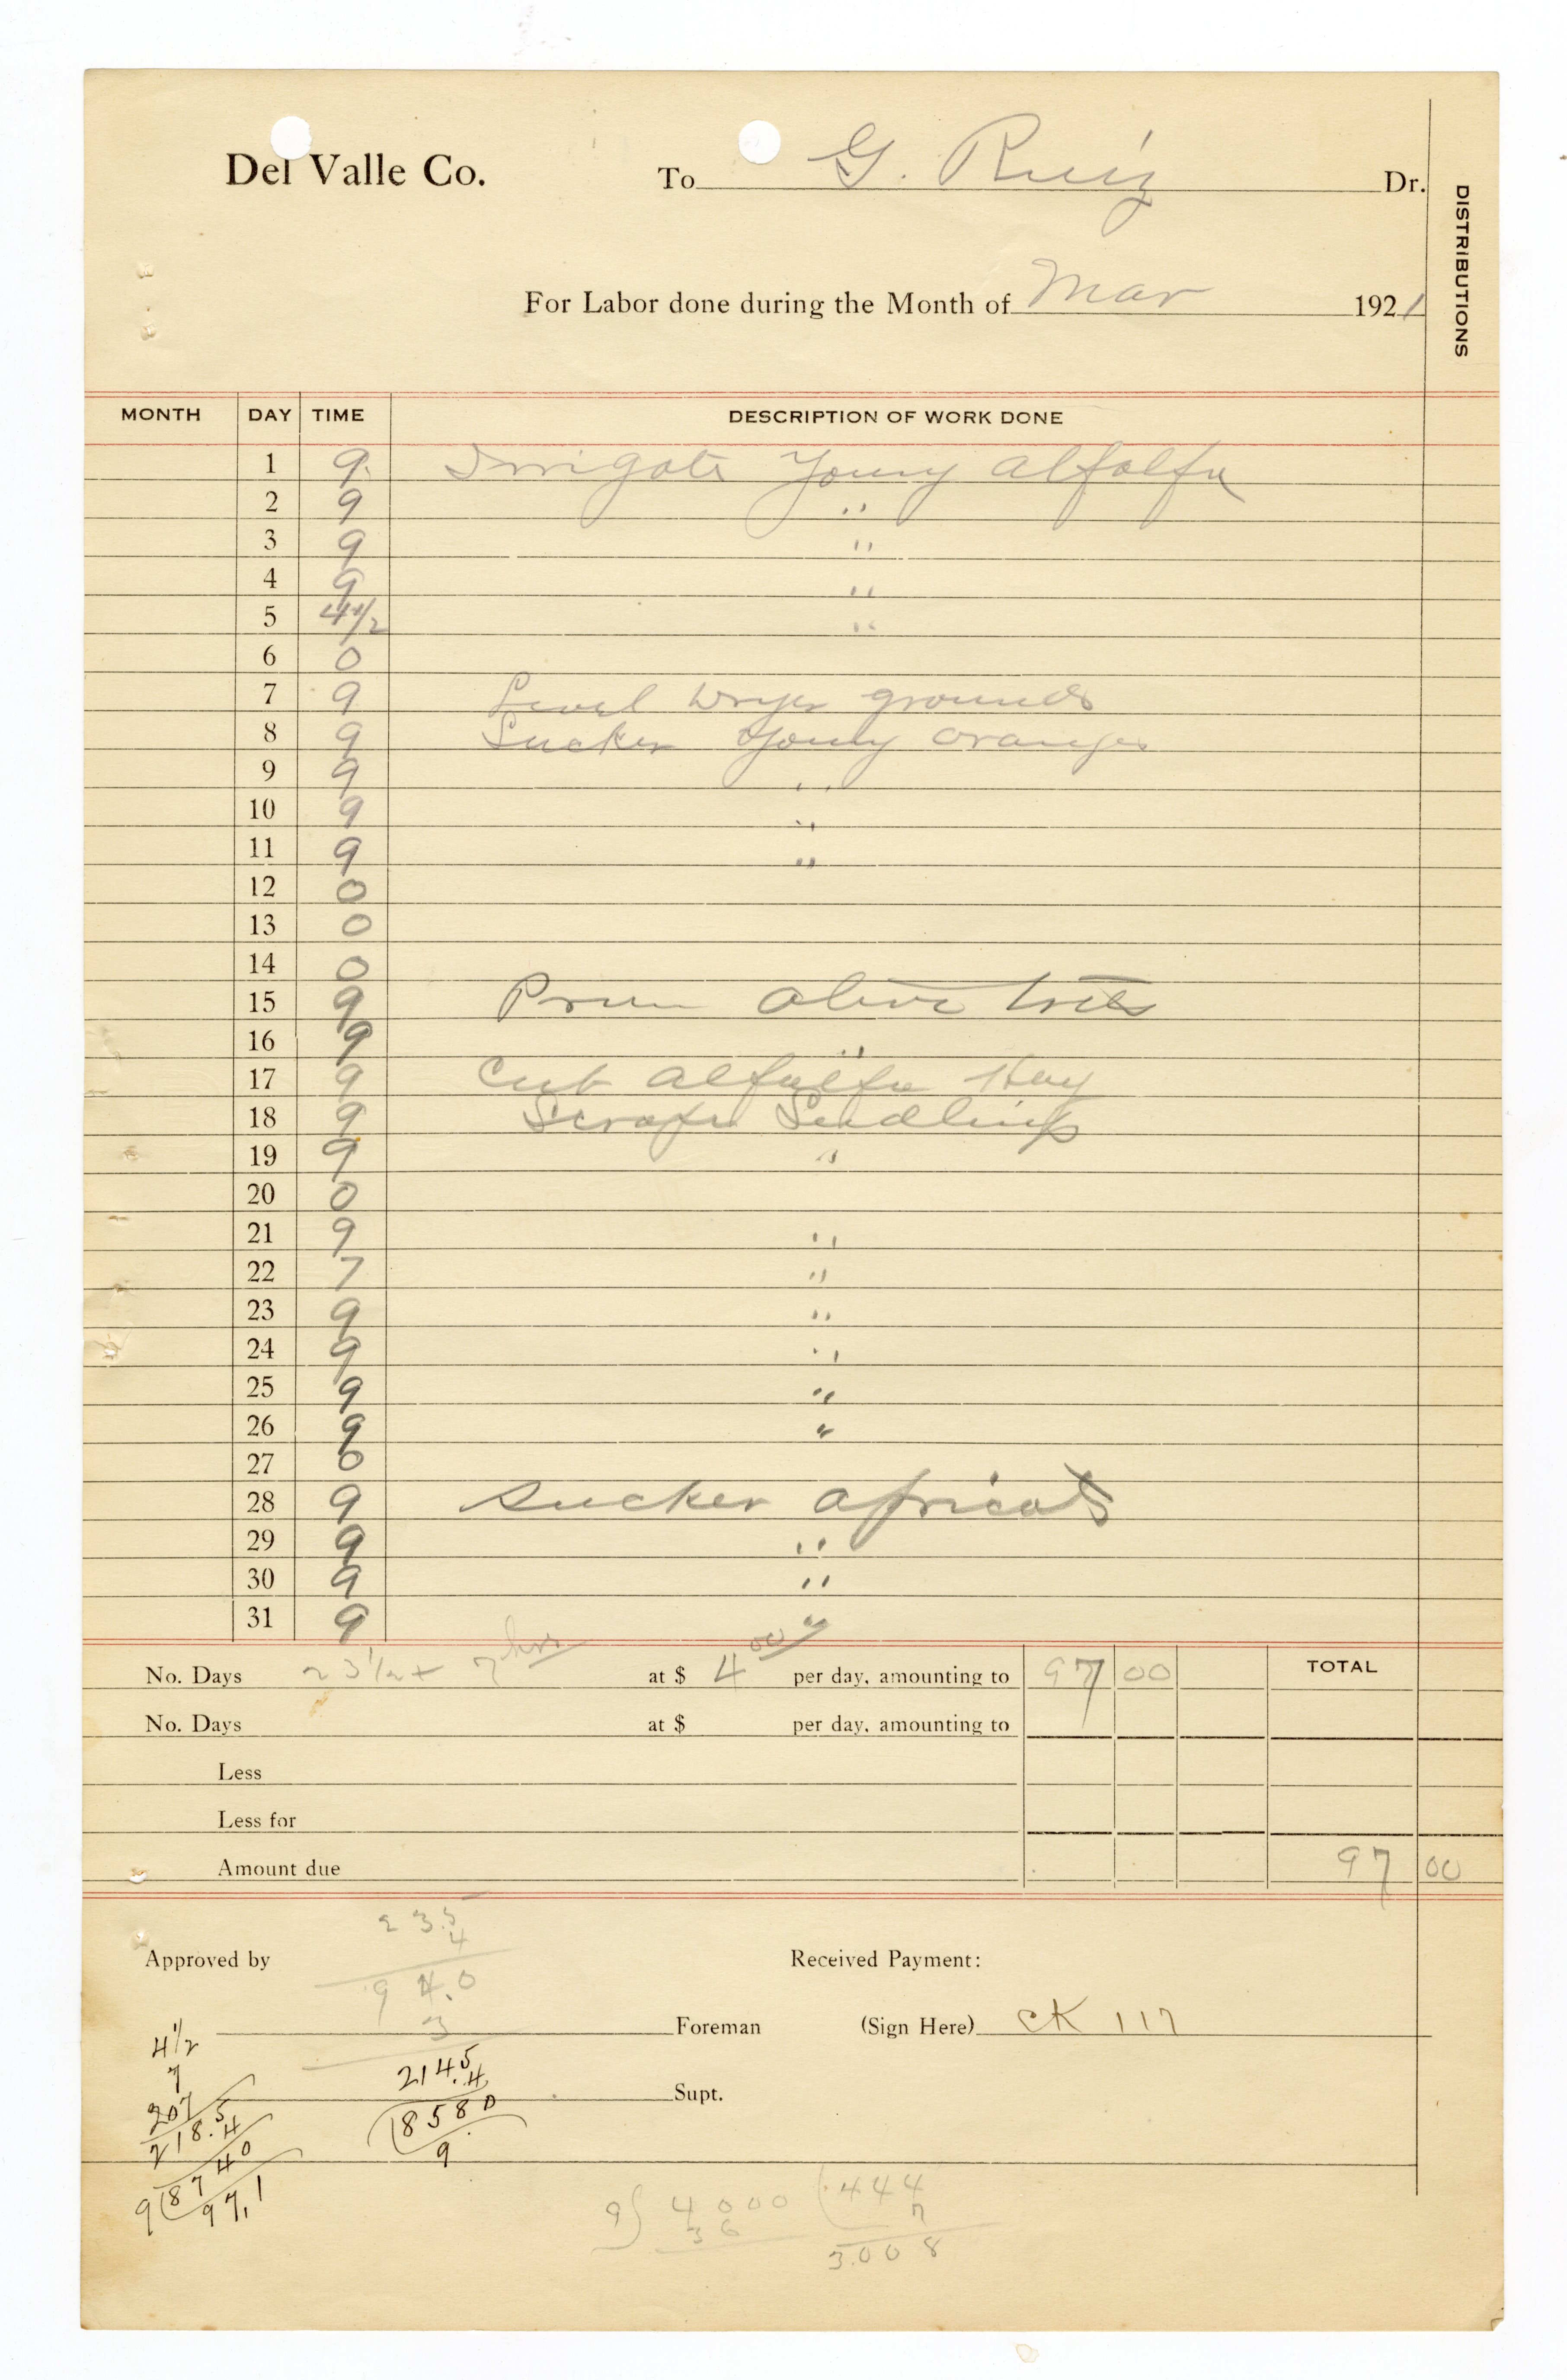 Del Valle Co. To G. Ruiz Dr.
DISTRIBUTIONS
For Labor done during the Month of Mar 1921
MONTH DAY TIME DESCRIPTION OF WORK DONE
1 9 Irrigate Young Alfalfa
2 9 "
3 9 "
4 9 "
5 4 1/2 "
6 0
7 9 Level grounds
8 9 Sucker Young Oranges
9 9 "
10 9 "
11 9 "
12 0
13 0
14 0
15 9 Prun olive trees
16 9 "
17 9 Cut Alfalfa Hay
18 9 Scrape Seedlings
19 9 "
20 0
21 9 "
22 7 "
23 9 "
24 9 "
25 9 "
26 9 "
27 0
28 9 Sucker apricots
29 9 "
30 9 "
31 9 "
No. Days 23 1/2 + 7 hrs at $ 4 00 per day, amounting to 97 00 TOTAL
No. Days at $ per day, amounting to
Less
Less for
Amount due 97 00
23.5
4
Approved by Received Payment:
94.0
3
Foreman (Sign Here) CK 117
4 1/2
7
207
218.5
4
9 8740
97.1
214.5
4
Supt.
8580
9
9) 4000 (.444
36 7
3.008